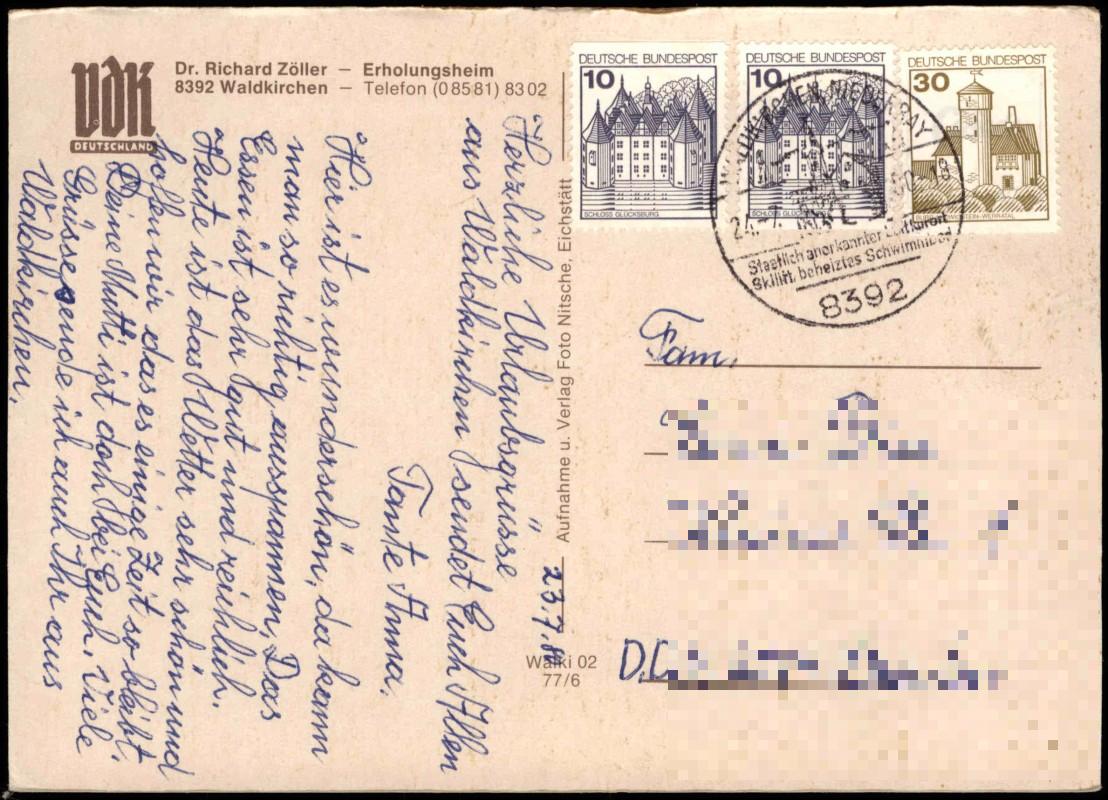 VdK
DEUTSCHLAND
Dr. Richard Zöller – Erholungsheim
8392 Waldkirchen – Telefon (08581) 8302
DEUTSCHE BUNDESPOST
10
SCHLOSS GLÜCKSBURG
DEUTSCHE BUNDESPOST
10
SCHLOSS GLÜCKSBURG
DEUTSCHE BUNDESPOST
30
WALDKIRCHEN, NIEDERBAY
Staatlich anerkannter Luftkurort
Skilift, beheiztes Schwimmbad
8392
23.7.80
Herzliche Urlaubsgrüsse
aus Waldkirchen sendet Euch Allen
Tante Anna.
Hier ist es wunderschön, da kann
man so richtig ausspannen, Das
Essen ist sehr gut und reichlich.
Heute ist das Wetter sehr schön und
hoffen wir das es einige Zeit so bleibt.
Deine Mutti ist doch bei Euch. Viele
Grüsse sende ich auch Ihr aus
Waldkirchen.
Aufnahme u. Verlag Foto Nitsche, Eichstätt
Walki 02
77/6
Fam.